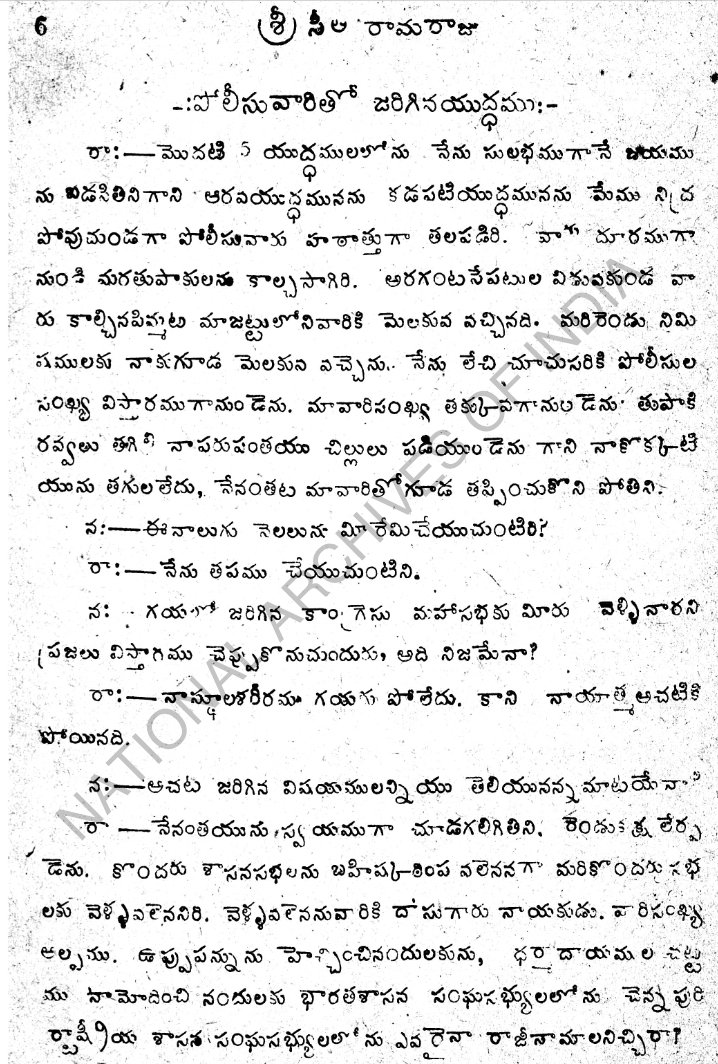 6
శ్రీ సీతారామరాజు
-:పోలీసువారితో జరిగినయుద్ధము:-
రా:—మొదటి 5 యుద్ధములలోను నేను సులభముగానే జయము
ను బడసితినిగాని ఆరవయుద్ధమునను కడపటియుద్ధమునను మేము నిద్ర
పోవుచుండగా పోలీసువారు హఠాత్తుగా తలపడిరి. వారు దూరముగా
నుండి మరతుపాకులను కాల్చసాగిరి. అరగంటసేపటుల విడువకుండ వా
రు కాల్చినపిమ్మట మాజట్టులోనివారికి మెలకువ వచ్చినది. మరిరెండు నిమి
షములకు నాకుగూడ మెలకువ వచ్చెను. నేను లేచి చూచుసరికి పోలీసుల
సంఖ్య విస్తారముగానుండెను. మావారిసంఖ్య తక్కువగానుండెను తుపాకి
రవ్వలు తగిలి నాపరుపంతయు చిల్లులు పడియుండెను గాని నాకొక్కటి
యును తగులలేదు, నేనంతట మావారితోగూడ తప్పించుకొని పోతిని.
న:—ఈనాలుగు నెలలును మీరేమిచేయుచుంటిరి?
రా:—నేను తపము చేయుచుంటిని.
న: గయలో జరిగిన కాంగ్రెసు మహాసభకు మీరు వెళ్ళినారని
ప్రజలు విస్తారము చెప్పుకొనుచుందురు, అది నిజమేనా?
రా:—నాస్థూలశరీరము గయకు పోలేదు. కాని నాయాత్మ అచటికి
పోయినది.
న:—అచట జరిగిన విషయములన్నియు తెలియునన్న మాటయేనా
రా —నేనంతయును స్వయముగా చూడగలిగితిని. రెండుకక్ష లేర్ప
డెను. కొందరు శాసనసభలను బహిష్కరింప వలెననగా మరికొందరు సభ
లకు వెళ్ళవలెననిరి. వెళ్ళవలెననువారికి దాసుగారు నాయకుడు. వారిసంఖ్య
అల్పము. ఉప్పుపన్నును హెచ్చించినందులకును, ధర్మాదాయముల చట్ట
ము నామోదించి నందులకు భారతశాసన సంఘసభ్యులలోను చెన్న పురి
రాష్ట్రీయ శాసన సంఘసభ్యులలోను ఎవరైనా రాజీనామాలనిచ్చిరా?
NATIONAL ARCHIVES OF INDIA